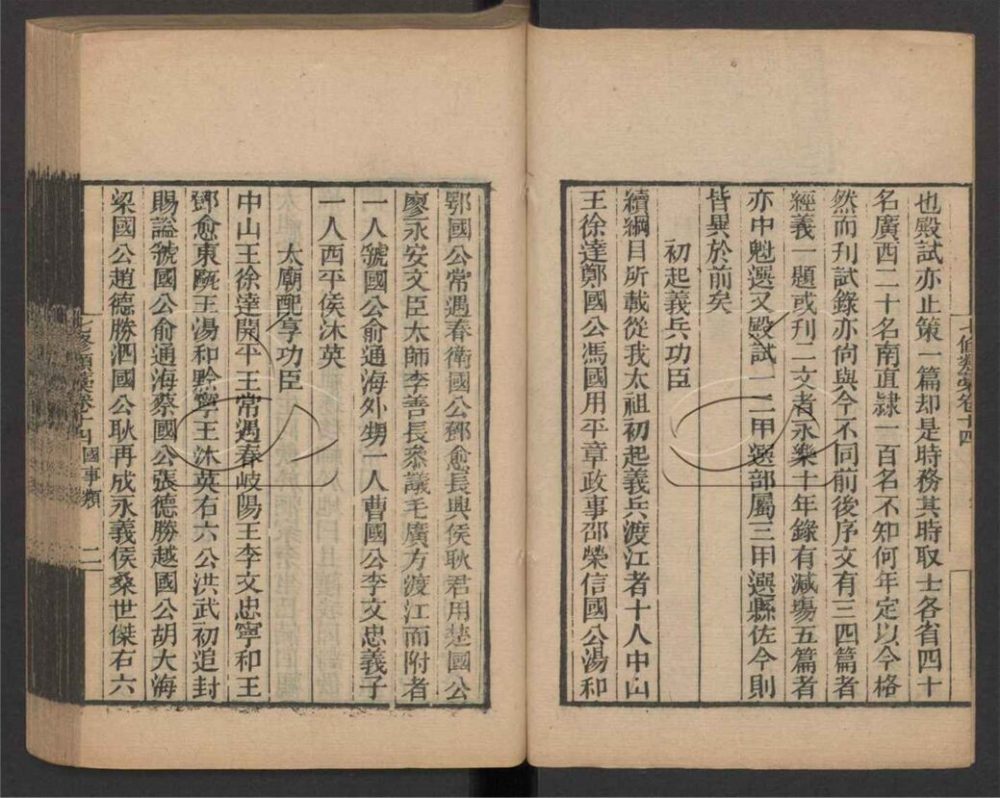 也殿試亦止策一篇却是時務其時取士各省四十
名廣西二十名南直隷一百名不知何年定以今格
然而刋試錄亦尙與今不同前後序文有三四篇者
經義一題或刋二文者永樂十年錄有減塲五篇者
亦中魁選又殿試一二甲選部屬三甲選縣佐今則
皆異於前矣
初起義兵功臣
續綱目所載從我太祖初起義兵渡江者十人中山
王徐達鄭國公馮國用平章政事邵榮信國公湯和
鄂國公常遇春衛國公鄧愈長興侯耿君用楚國公
廖永安文臣太師李善長叅議毛廣方渡江而附者
一人虢國公俞通海外甥一人曹國公李文忠義子
一人西平侯沐英
太廟配享功臣
中山王徐達開平王常遇春岐陽王李文忠寧和王
鄧愈東甌王湯和黔寧王沐英右六公洪武初追封
賜謚虢國公俞通海蔡國公張德勝越國公胡大海
梁國公趙德勝泗國公耿再成永義侯桑世傑右六
七修類藁卷十四 國事類 二